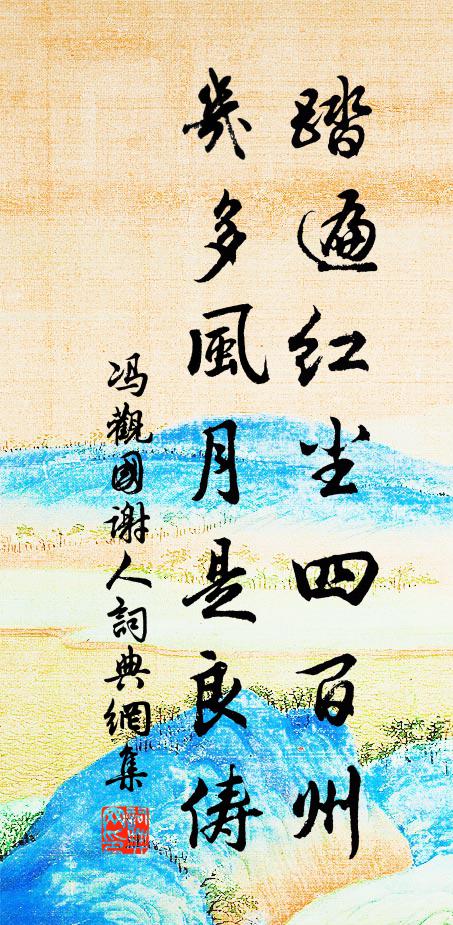 踏遍红尘四百州
幾多風月是良俦
冯觀國谢人詞典網集